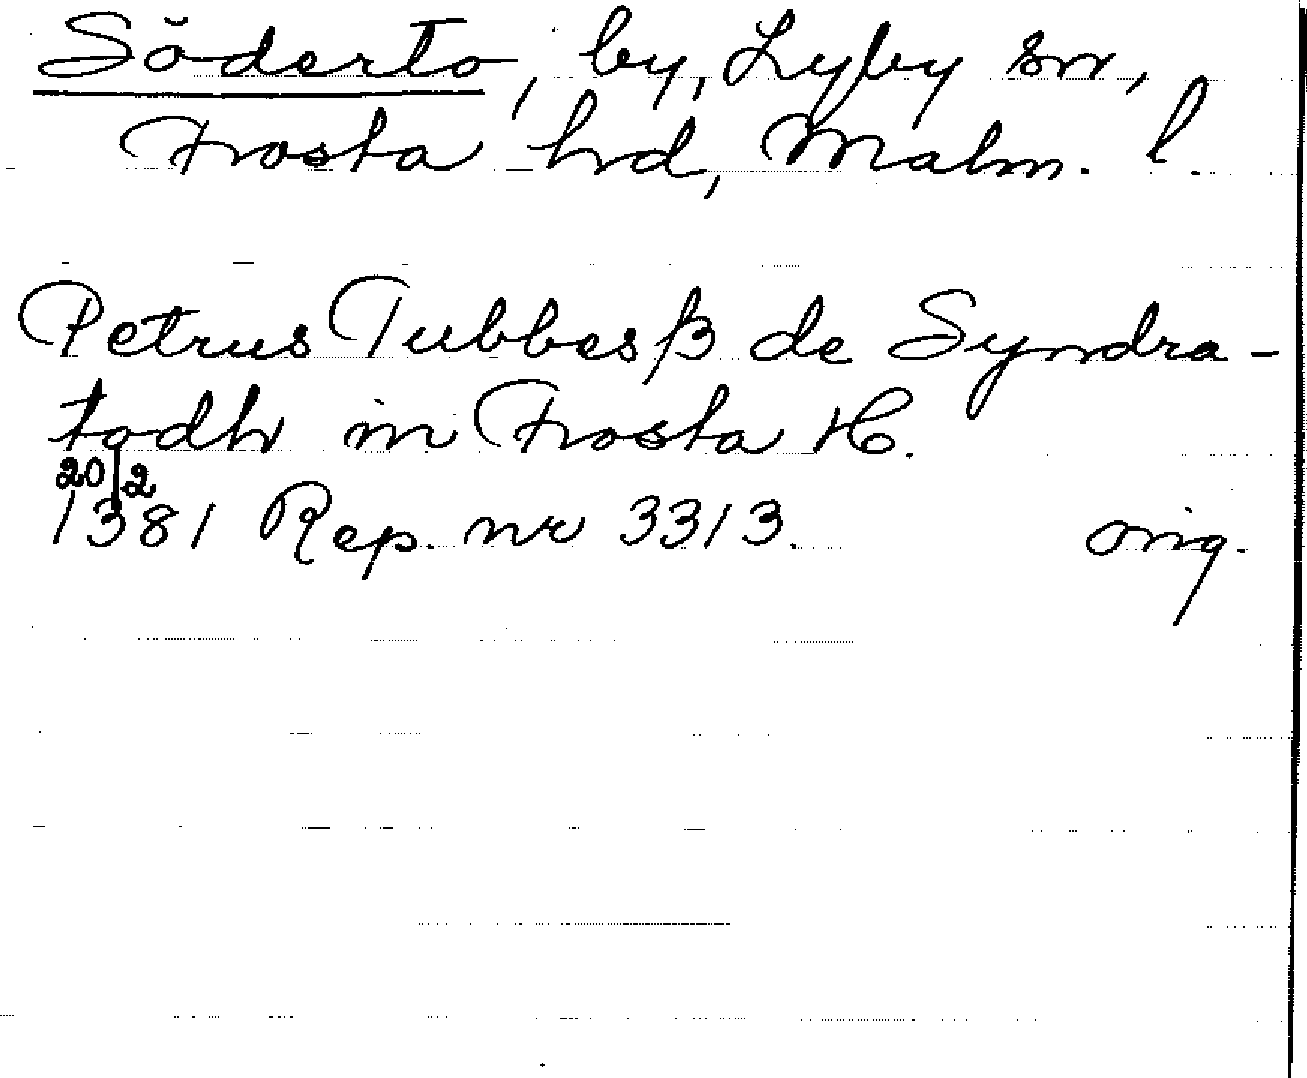 Söderto, by, Lyby sn,
Frosta hrd, Malm. l.
Petrus Tubbesß de Syndra-
todh in Frosta H.
20/2
1381 Rep. nr 3313. orig.